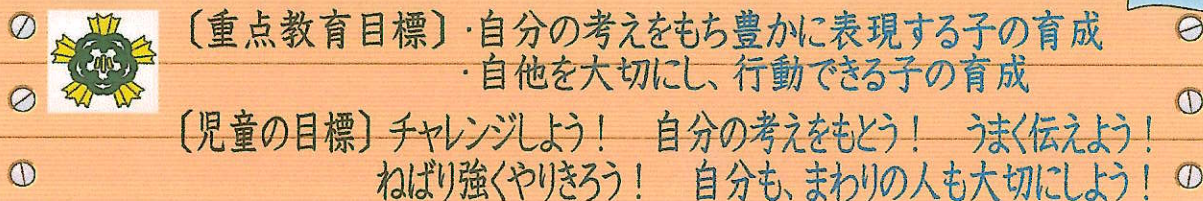 〔重点教育目標〕・自分の考えをもち豊かに表現する子の育成
・自他を大切にし、行動できる子の育成
〔児童の目標〕チャレンジしよう！　自分の考えをもとう！　うまく伝えよう！
ねばり強くやりきろう！　自分も、まわりの人も大切にしよう！